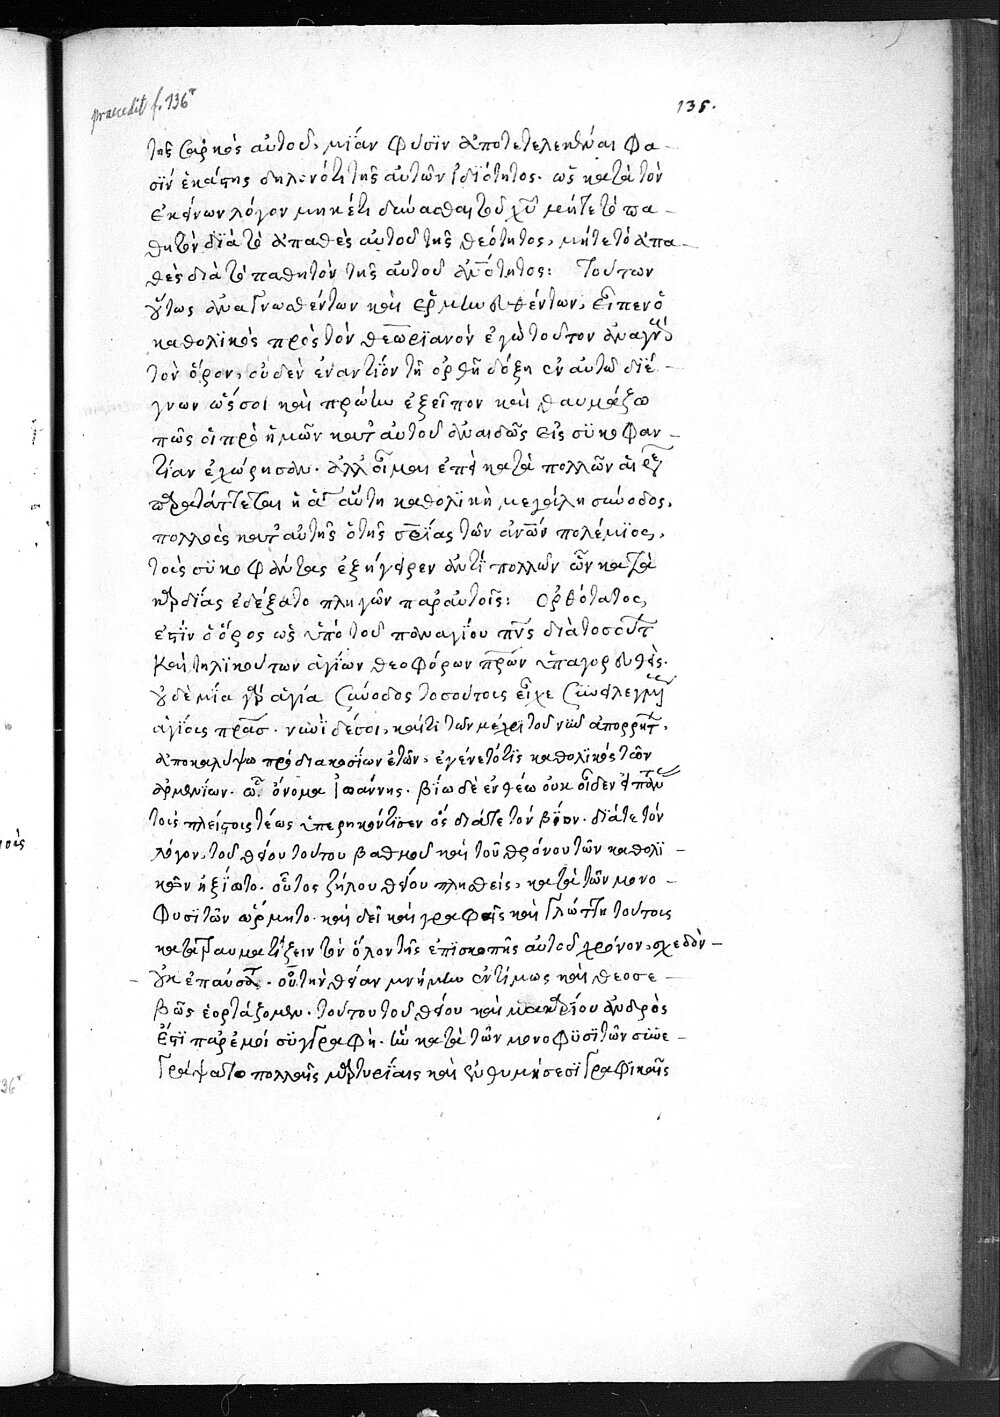 praecedit f. 136r
135.
τῆς σαρκὸς αὐτοῦ, μίαν φύσϊν ἀποτετελεκέναι φα-
σϊν ἑκάστης δηλονότι τῆς αὐτῶν ἰδιότητος. ὡς κατὰ τὸν
ἐκείνων λόγον μηκέτι δύνασθαι τοῦ χυ μήτε τὸ πα-
θητὸν διὰ τὸ ἀπαθὲς αὐτοῦ τῆς θεότητος, μήτε τὸ ἀπα-
θὲς διὰ τὸ παθητὸν τῆς αὐτοῦ ἀνότητος: Τούτων
οὕτως ἀναγνωσθέντων καὶ ἑρμηνευθέντων, εἶπεν ὁ
καθολϊκὸς πρὸς τὸν θεωρϊανὸν ἐγὼ τοῦτον ἀναγνοὺ
τὸν ὅρον, οὐδὲν ἐναντίον τῇ ὀρθῇ δόξῃ ἐν αὐτῷ διέ-
γνων ὥς σοι καὶ πρώην ἐξεῖπον καὶ θαυμάζω
πῶς οἱ πρὸ ἡμῶν κατ' αὐτοῦ ἀναιδῶς εἰς συκοφαν-
τίαν ἐχώρησαν. ἀλλ' οἶμαι ἐπεὶ κατὰ πολλῶν αἱ
παρατάττεται ἡ ἁγ αὕτη καθολϊκὴ μεγάλη σύνοδος,
πολλοὺς κατ' αὐτῆς ὁ τῆς σρίας τῶν ἀνων πολέμϊος,
τοὺς συκοφάντας ἐξήγειρεν ἀντὶ πολλῶν ὧν κατὰ
καρδίας ἐδέξατο πληγῶν παρ' αὐτοῖς: Ὀρθότατος
ἐστὶν ὁ ὅρος ὡς ὑπὸ τοῦ παναγίου πνς διὰ τοσούτ
καὶ τηλϊκούτων ἁγίων θεοφόρων πρων ὑπαγορευθείς.
οὐδεμία γὰρ ἁγία σύνοδος τοσούτοις εἶχε συνειλεγμ
ἁγίοις πρασ. νυνὶ δέ σοι, καί τι τῶν μέχρι τοῦ νῦν ἀπορρήτ,
ἀποκαλύψω πρὸ διακοσίων ἐτῶν, ἐγένετό τϊς καθολϊκὸς τῶν
ἀρμενίων. ὄνομα Ἰωάννης. βίῳ δὲ ἐνθέῳ οὐκ οἶδεν εἰ
τοῖς πλείστοις τέως ὑπερηκόντισεν ὃς διά τε τὸν βίον. διά τε τὸν
λόγον, τοῦ θείου τούτου βαθμοῦ καὶ τοῦ θρόνου τῶν καθολϊ-
κῶν ἠξίωτο. οὗτος ζήλου θείου πλησθείς, κατὰ τῶν μονο-
φυσϊτῶν ὥρμητο. καὶ δεῖ καὶ γραφαῖς καὶ γλώττῃ τούτοις
κατατραυματίζειν τὸν ὅλον τῆς ἐπϊσκοπῆς αὐτοῦ χρόνον, σχεδὸν-
- οὐκ ἐπαύσατ. οὗ τὴν θείαν μνήμην ἐντίμως καὶ θεοσε-
βῶς ἑορτάζομεν. τούτου τοῦ θείου καὶ μακαρίου ἀνδρὸς
ἔστϊ παρ' ἐμοὶ συγγραφὴ. ἣν κατὰ τῶν μονοφυσϊτῶν συνε-
γράψατο πολλαῖς μαρτυρίαις καὶ ἐνθυμήσεσϊ γραφϊκαῖς